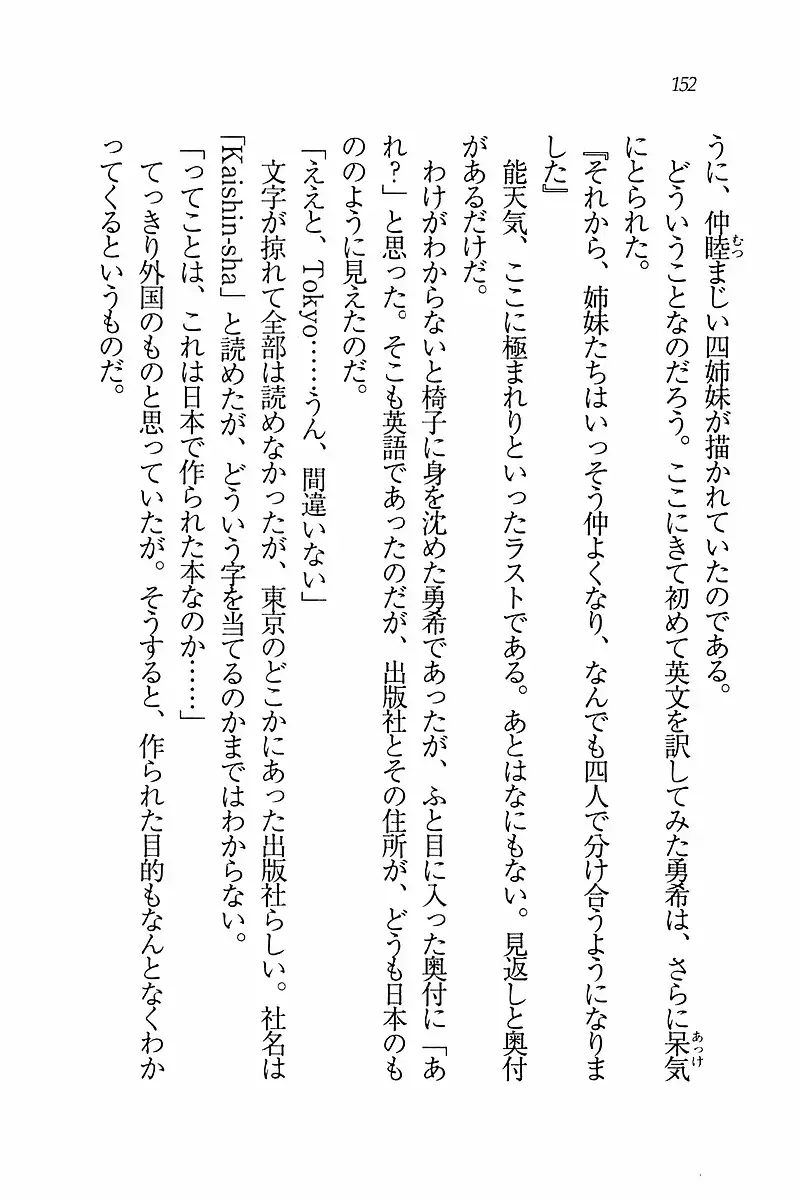 152
うに、仲睦まじい四姉妹が描かれていたのである。
どういうことなのだろう。ここにきて初めて英文を訳してみた勇希は、さらに呆気
にとられた。
『それから、姉妹たちはいっそう仲よくなり、なんでも四人で分け合うようになりま
した』
能天気、ここに極まれりといったラストである。あとはなにもない。見返しと奥付
があるだけだ。
わけがわからないと椅子に身を沈めた勇希であったが、ふと目に入った奥付に「あ
れ?」と思った。そこも英語であったのだが、出版社とその住所が、どうも日本のも
ののように見えたのだ。
「ええと、Tokyo……うん、間違いない」
文字が掠れて全部は読めなかったが、東京のどこかにあった出版社らしい。社名は
「Kaishin-sha」と読めたが、どういう字を当てるのかまではわからない。
「ってことは、これは日本で作られた本なのか……」
てっきり外国のものと思っていたが。そうすると、作られた目的もなんとなくわか
ってくるというものだ。